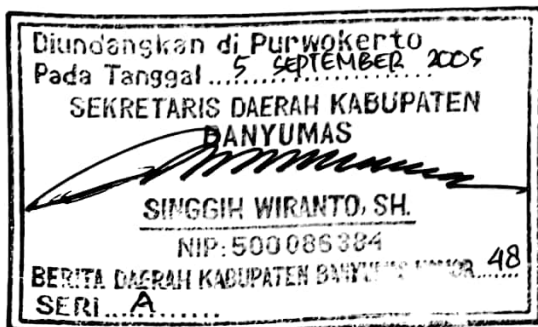 Diundangkan di Purwokerto
Pada Tanggal ... 5 SEPTEMBER 2005
SEKRETARIS DAERAH KABUPATEN
BANYUMAS
SINGGIH WIRANTO, SH.
NIP: 500086384
BERITA DAERAH KABUPATEN BANYUMAS NOMOR ...... 48
SERI ... A ........